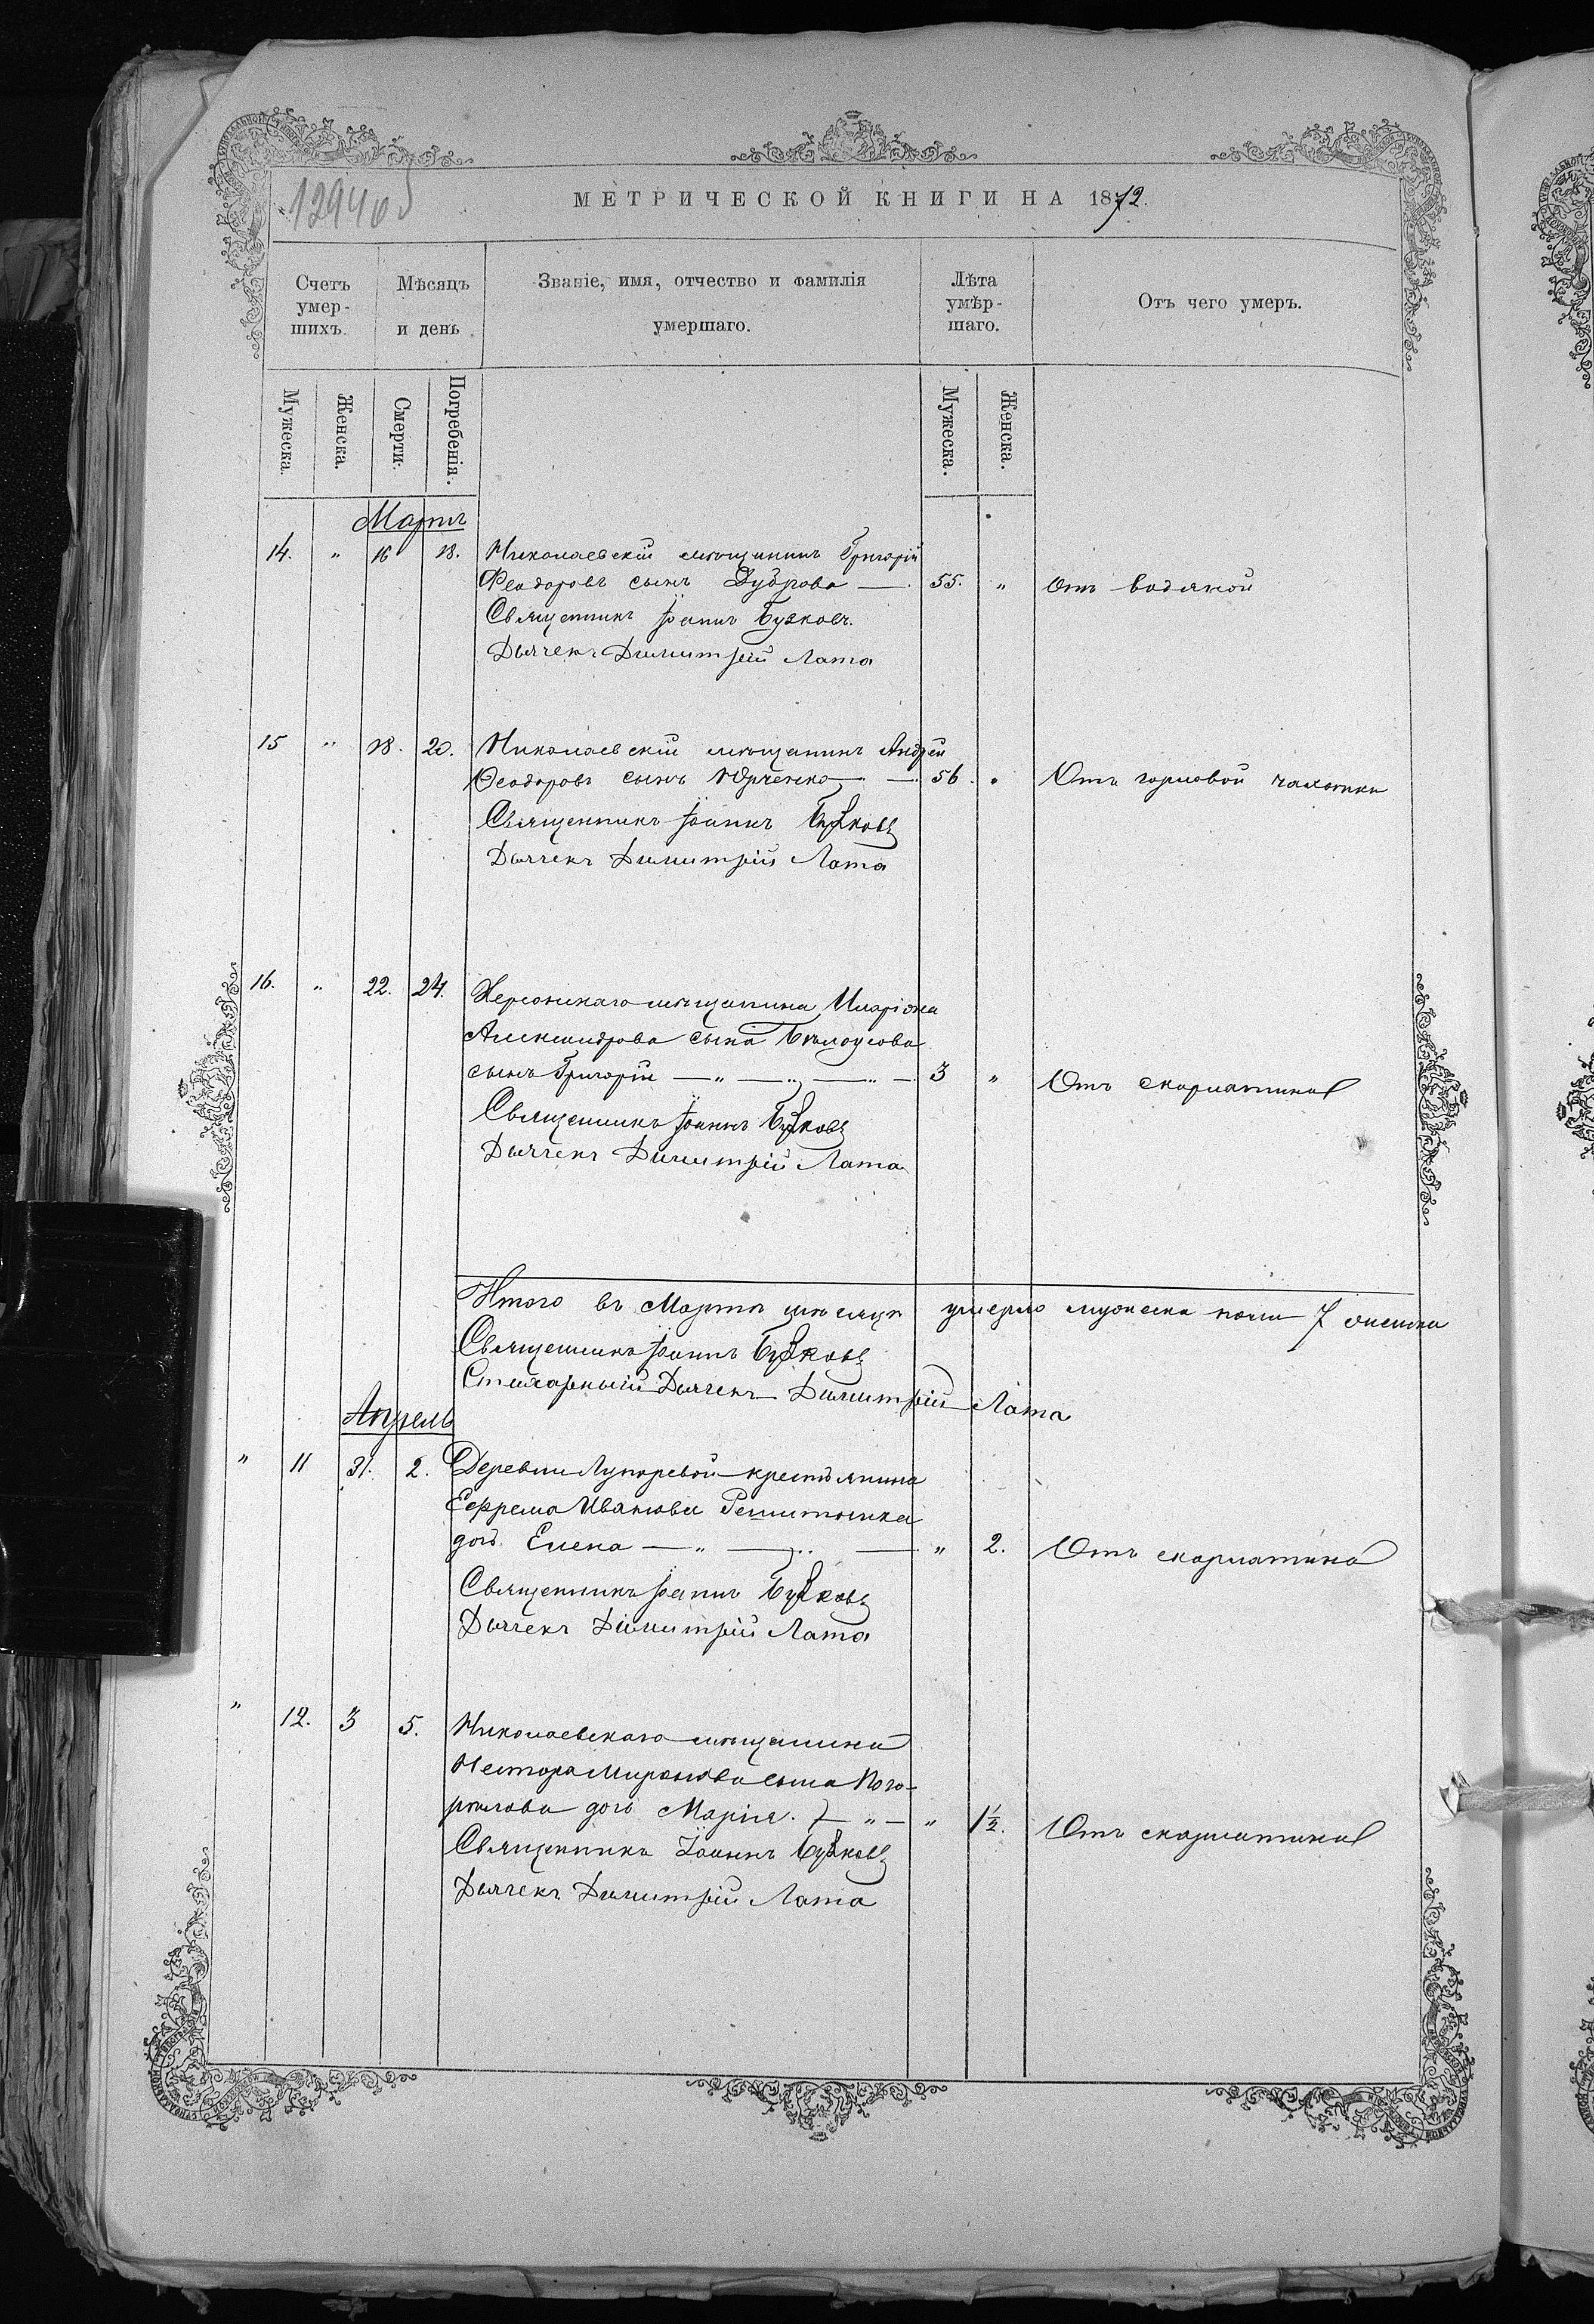 12940
МЕТРИЧЕСКОЙ КНИГИ НА 1872.
Счетъ умер-шихъ.
Мѣсяцъ и день
Званіе, имя, отчество и фамилія умершаго.
Лѣта умѣр-шаго.
Отъ чего умеръ.
Мужеска. Женска. Смерти. Погребенія. Мужеска. Женска.
Мартъ
14. " 16 18. Николаевскій мѣщанинъ Григорій
Феодоровъ сынъ Дуброва — 55. " Отъ водяной
Священникъ Іоаннъ Бузковъ.
Дьячекъ Димитрій Лата
15 " 18. 20. Николаевскій мѣщанинъ Андрей
Феодоровъ сынъ Юрченко — 56. " Отъ горловой чахотки
Священникъ Іоаннъ Бузковъ
Дьячекъ Димитрій Лата
16. " 22. 24. Херсонскаго мѣщанина Иларіона
Александрова сына Бѣлоусова
сынъ Григорій — " — " — " — 3 " Отъ скарлатины
Священникъ Іоаннъ Бузковъ
Дьячекъ Димитрій Лата
Итого въ Мартѣ мѣсяцѣ умерло мужеска пола 7 женска
Священникъ Іоаннъ Бузковъ
Стихарный Дьячекъ Димитрій Лата
Апрель
" 11 31. 2. Деревни Лупаревой крестьянина
Ефрема Иванова
дочь Елена — " — " — " 2. Отъ скарлатины
Священникъ Іоаннъ Бузковъ
Дьячекъ Димитрій Лата
" 12. 3 5. Николаевскаго мѣщанина
Нестора Миронова сына Пого-
рѣлова дочь Марія. — " — " 1½. Отъ скарлатины
Священникъ Іоаннъ Бузковъ
Дьячекъ Димитрій Лата